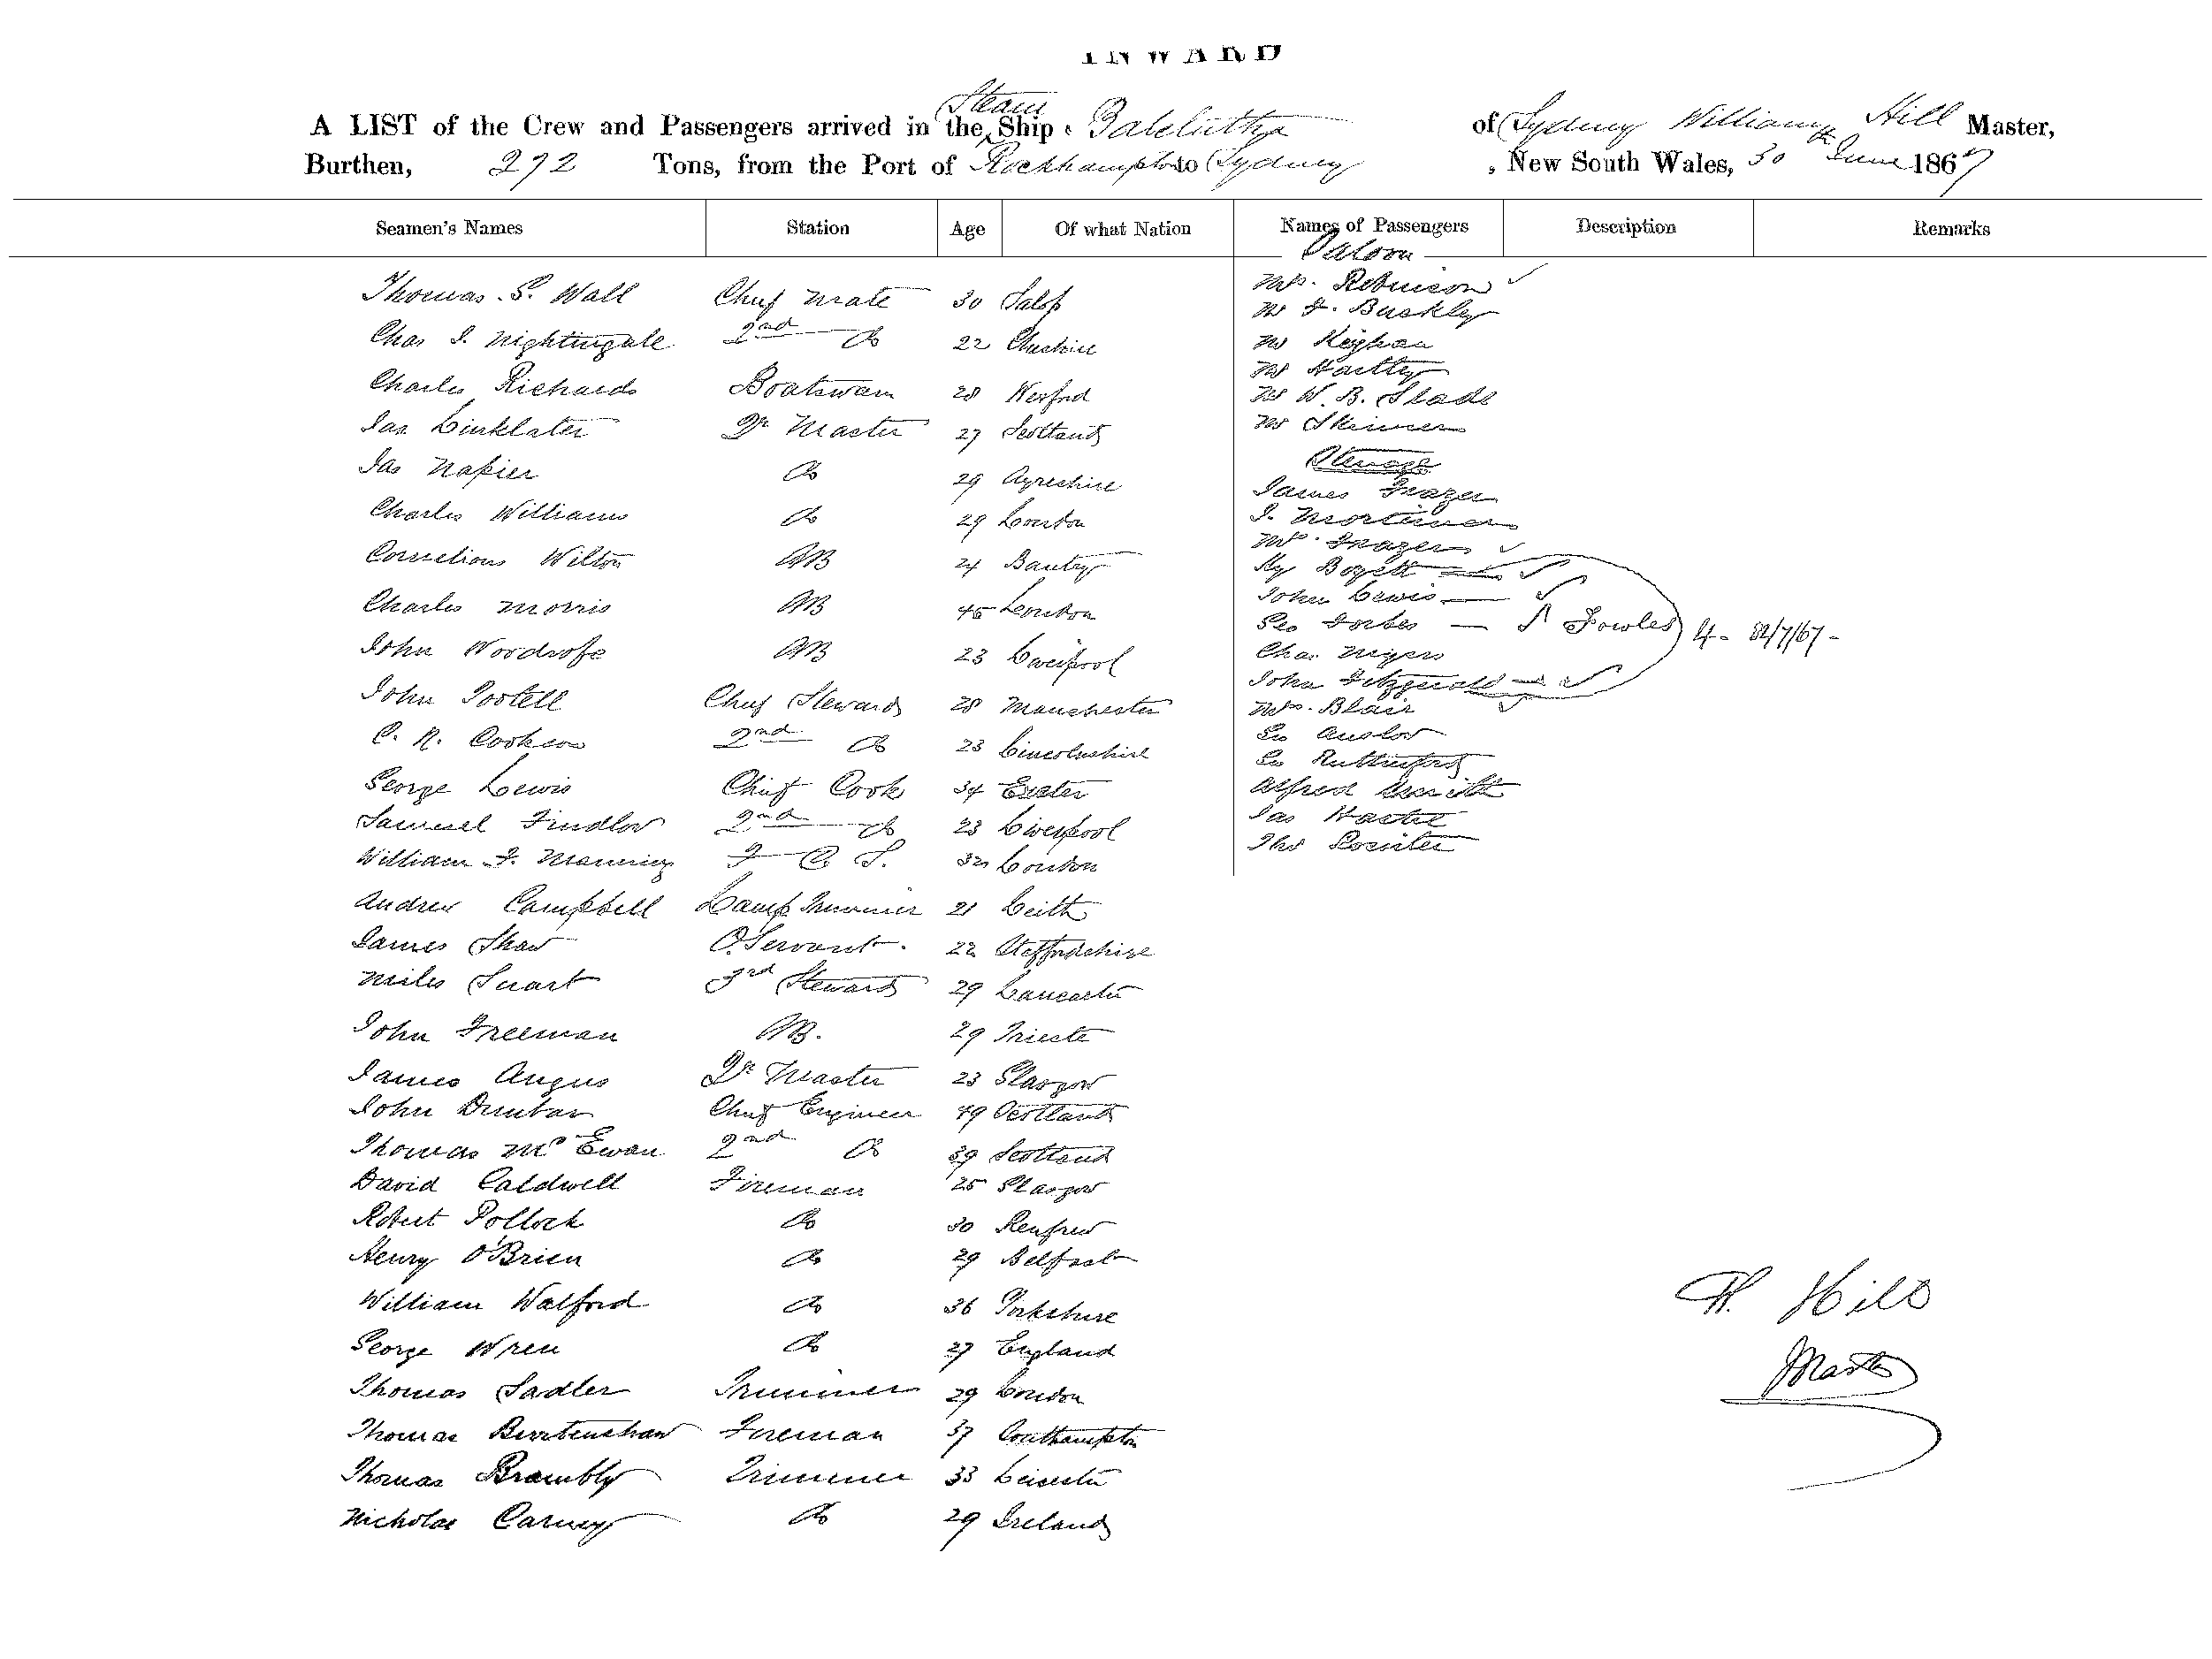 INWARD
A LIST of the Crew and Passengers arrived in the Steam Ship Balclutha of Sydney William Hill Master,
Burthen, 272 Tons, from the Port of Rockhampton to Sydney, New South Wales, 30th June 1867
Seamen's Names Station Age Of what Nation Names of Passengers Description Remarks
Thomas S. Wall Chief Mate 30 Salop
Chas J. Nightingale 2nd Do 22 Cheshire
Charles Richards Boatswain 28 Wexford
Jas Linklater Qr Master 27 Scotland
Jas Napier Do 29 Ayreshire
Charles Williams Do 29 London
Cornelious Wilton AB 24 Bantry
Charles Morris AB 45 London
John Woodrofe AB 23 Liverpool
John Tootell Chief Steward 28 Manchester
C. R. Cookson 2nd Do 23 Lincolnshire
George Lewis Chief Cook 34 Exeter
Samuel Findlow 2nd Do 23 Liverpool
William F. Manning F C S. 32 London
Andrew Campbell Lamp Trimmer 21 Leith
James Shaw O. Servant. 22 Staffordshire
Miles Suart 3rd Steward 29 Lancaster
John Freeman AB. 29 Trieste
James Angus Qr Master 23 Glasgow
John Dunbar Chief Engineer 49 Scotland
Thomas McEwan 2nd Do 39 Scotland
David Caldwell Fireman 25 Glasgow
Robert Pollock Do 30 Renfrew
Henry O'Brien Do 29 Belfast
William Walford Do 36 Yorkshire
George Wren Do 27 England
Thomas Sadler Trimmer 29 London
Thomas Birtenshaw Fireman 37 Southampton
Thomas Brambly Trimmer 33 Leicester
Nicholas Carney Do 29 Ireland
Saloon
Mrs. Robinson
Mr F. Buckley
Mr Keighan
Mr Hartley
Mr W. B. Slade
Mr Skinner
Steerage
James Frazer
J. Mortimer
Mrs. Frazer
Hy Bogett
John Lewis
Geo Forbes Fowles 4 - 2/7/67 -
Chas Myers
John Fitzgerald
Mrs. Blair
Geo Auslow
Geo Rutherford
Alfred Smith
Jas Hastie
Thos Pointer
W. Hill
Master